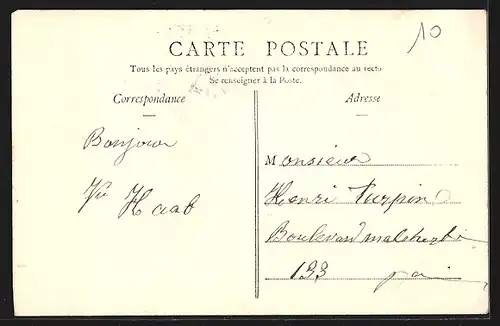 10
CARTE POSTALE
Tous les pays étrangers n'acceptent pas la correspondance au recto
Se renseigner à la Poste.
Correspondance
Adresse
Bonjour
Haab
Monsieur
Henri Turpin
Boulevard malesherbe
133